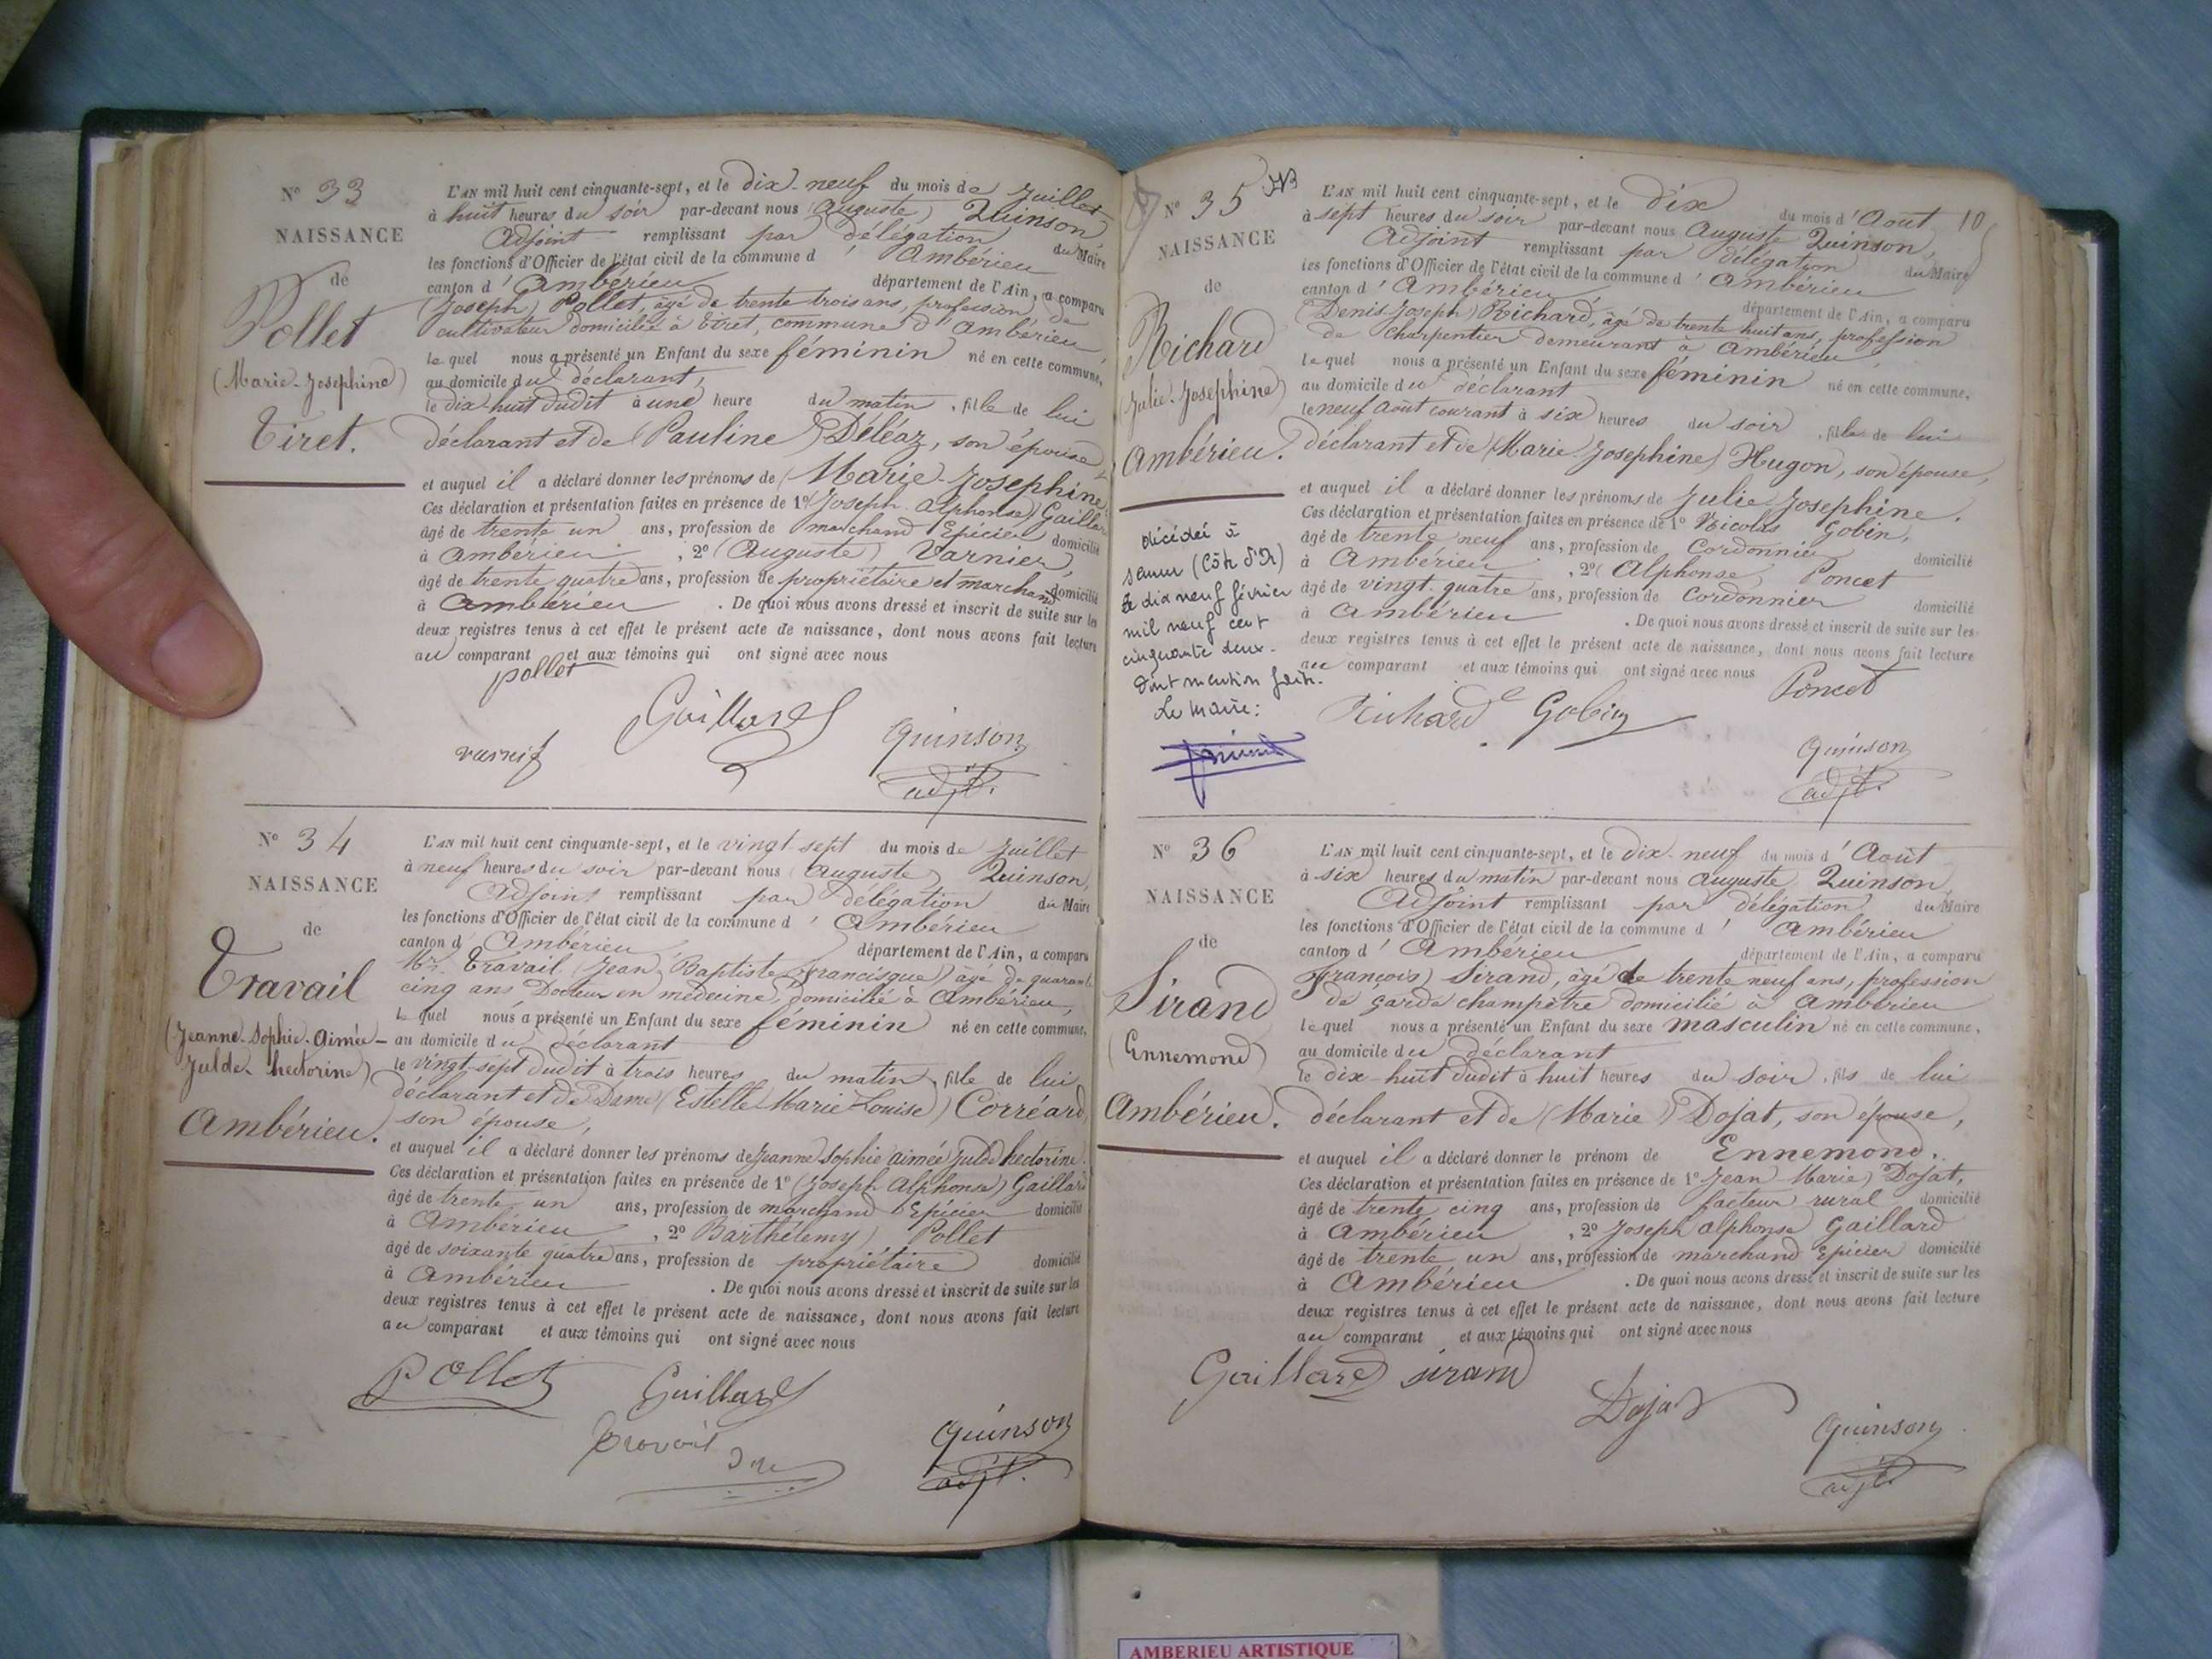 N° 33
NAISSANCE
de
Pollet
(Marie-Josephine)
Tiret.
L'AN mil huit cent cinquante-sept, et le dix-neuf du mois de Juillet
à huit heures du soir par-devant nous (Auguste) Quinson
Adjoint remplissant par délégation du Maire
les fonctions d'Officier de l'état civil de la commune d' Ambérieu
canton d' Ambérieu département de l'Ain, a comparu
(Joseph) Pollet, âgé de trente trois ans, profession de
cultivateur domicilié à Tiret, commune d'Ambérieu
lequel nous a présenté un Enfant du sexe féminin né en cette commune,
au domicile du déclarant,
le dix-huit dudit à une heure du matin, fille de lui
déclarant et de (Pauline) Déléaz, son épouse,
et auquel il a déclaré donner les prénoms de (Marie-Josephine)
Ces déclaration et présentation faites en présence de 1° (Joseph-Alphonse) Gaillard
âgé de trente un ans, profession de marchand Epicier domicilié
à Ambérieu, 2° (Auguste) Varnier,
âgé de trente quatre ans, profession de propriétaire et marchand domicilié
à Ambérieu. De quoi nous avons dressé et inscrit de suite sur les
deux registres tenus à cet effet le présent acte de naissance, dont nous avons fait lecture
au comparant et aux témoins qui ont signé avec nous
pollet
Gaillard
Quinson
adjt.
N° 34
NAISSANCE
de
Travail
(Jeanne-Sophie-Aimée-
Julde-hectorine)
Ambérieu.
L'AN mil huit cent cinquante-sept, et le vingt-sept du mois de Juillet
à neuf heures du soir par-devant nous (Auguste) Quinson,
Adjoint remplissant par délégation du Maire
les fonctions d'Officier de l'état civil de la commune d' Ambérieu
canton d' Ambérieu département de l'Ain, a comparu
Mr. Travail (Jean Baptiste Francisque) âgé de quarante
cinq ans Docteur en médecine, domicilié à Ambérieu,
lequel nous a présenté un Enfant du sexe féminin né en cette commune,
au domicile du déclarant
le vingt-sept dudit à trois heures du matin, fille de lui
déclarant et de Dame (Estelle Marie Louise) Corréard,
son épouse,
et auquel il a déclaré donner les prénoms de Jeanne Sophie Aimée Julde hectorine.
Ces déclaration et présentation faites en présence de 1° (Joseph Alphonse) Gaillard
âgé de trente un ans, profession de marchand Epicier domicilié
à Ambérieu, 2° Barthélemy) Pollet
âgé de soixante quatre ans, profession de propriétaire domicilié
à Ambérieu. De quoi nous avons dressé et inscrit de suite sur les
deux registres tenus à cet effet le présent acte de naissance, dont nous avons fait lecture
au comparant et aux témoins qui ont signé avec nous
Pollet
Gaillard
Quinson
adjt.
10
N° 35
NAISSANCE
de
Richard
(Julie-Josephine)
Ambérieu.
décédée à
Semur (Côte d'Or)
le dix neuf février
mil neuf cent
cinquante deux.
Dont mention faite.
Le Maire:
L'AN mil huit cent cinquante-sept, et le dix du mois d'Août
à sept heures du soir par-devant nous Auguste Quinson,
Adjoint remplissant par délégation du Maire
les fonctions d'Officier de l'état civil de la commune d' Ambérieu
canton d' Ambérieu département de l'Ain, a comparu
(Denis Joseph) Richard, âgé de trente huit ans, profession
de charpentier demeurant à Ambérieu
lequel nous a présenté un Enfant du sexe féminin né en cette commune,
au domicile du déclarant
le neuf Août courant à six heures du soir, fille de lui
déclarant et de (Marie Josephine) Hugon, son épouse,
et auquel il a déclaré donner les prénoms de Julie Josephine.
Ces déclaration et présentation faites en présence de 1° Nicolas Gobin,
âgé de trente neuf ans, profession de Cordonnier domicilié
à Ambérieu, 2° (Alphonse Poncet
âgé de vingt-quatre ans, profession de Cordonnier domicilié
à Ambérieu. De quoi nous avons dressé et inscrit de suite sur les
deux registres tenus à cet effet le présent acte de naissance, dont nous avons fait lecture
au comparant et aux témoins qui ont signé avec nous
Poncet
Richard Gobin
Quinson
adjt.
N° 36
NAISSANCE
de
Sirand
(Ennemond)
Ambérieu.
L'AN mil huit cent cinquante-sept, et le dix-neuf du mois d'Août
à six heures du matin par-devant nous Auguste Quinson,
Adjoint remplissant par délégation du Maire
les fonctions d'Officier de l'état civil de la commune d' Ambérieu
canton d' Ambérieu département de l'Ain, a comparu
François) Sirand, âgé de trente neuf ans, profession
de garde champêtre domicilié à Ambérieu
lequel nous a présenté un Enfant du sexe masculin né en cette commune,
au domicile du déclarant
le dix-huit dudit à huit heures du soir, fils de lui
déclarant et de (Marie) Dojat, son épouse,
et auquel il a déclaré donner le prénom de Ennemond.
Ces déclaration et présentation faites en présence de 1° Jean Marie) Dojat,
âgé de trente cinq ans, profession de facteur rural domicilié
à Ambérieu, 2° Joseph Alphonse Gaillard
âgé de trente un ans, profession de marchand Epicier domicilié
à Ambérieu. De quoi nous avons dressé et inscrit de suite sur les
deux registres tenus à cet effet le présent acte de naissance, dont nous avons fait lecture
au comparant et aux témoins qui ont signé avec nous
Gaillard Sirand
Dojat
Quinson
adjt
AMBERIEU ARTISTIQUE